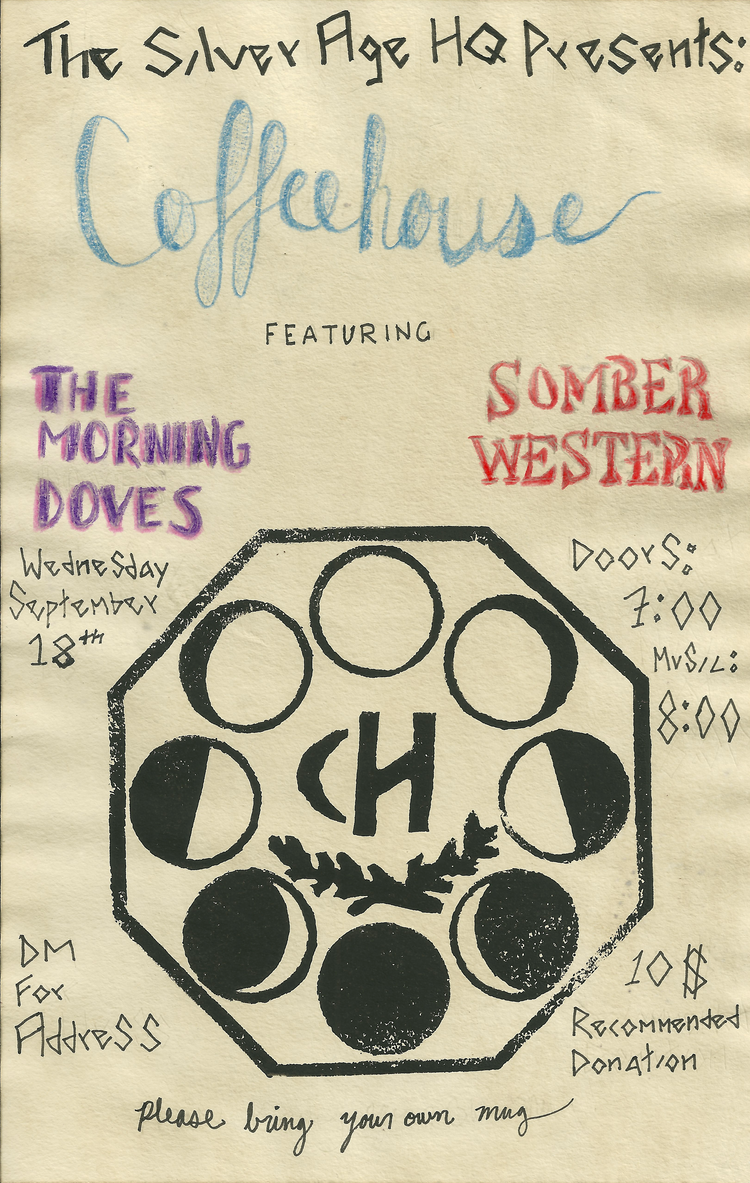 The Silver Age HQ Presents:
Coffeehouse
FEATURING
THE
MORNING
DOVES
SOMBER
WESTERN
Wednesday
September
18th
Doors:
7:00
Music:
8:00
CH
DM
For
Address
10$
Recommended
Donation
please bring your own mug